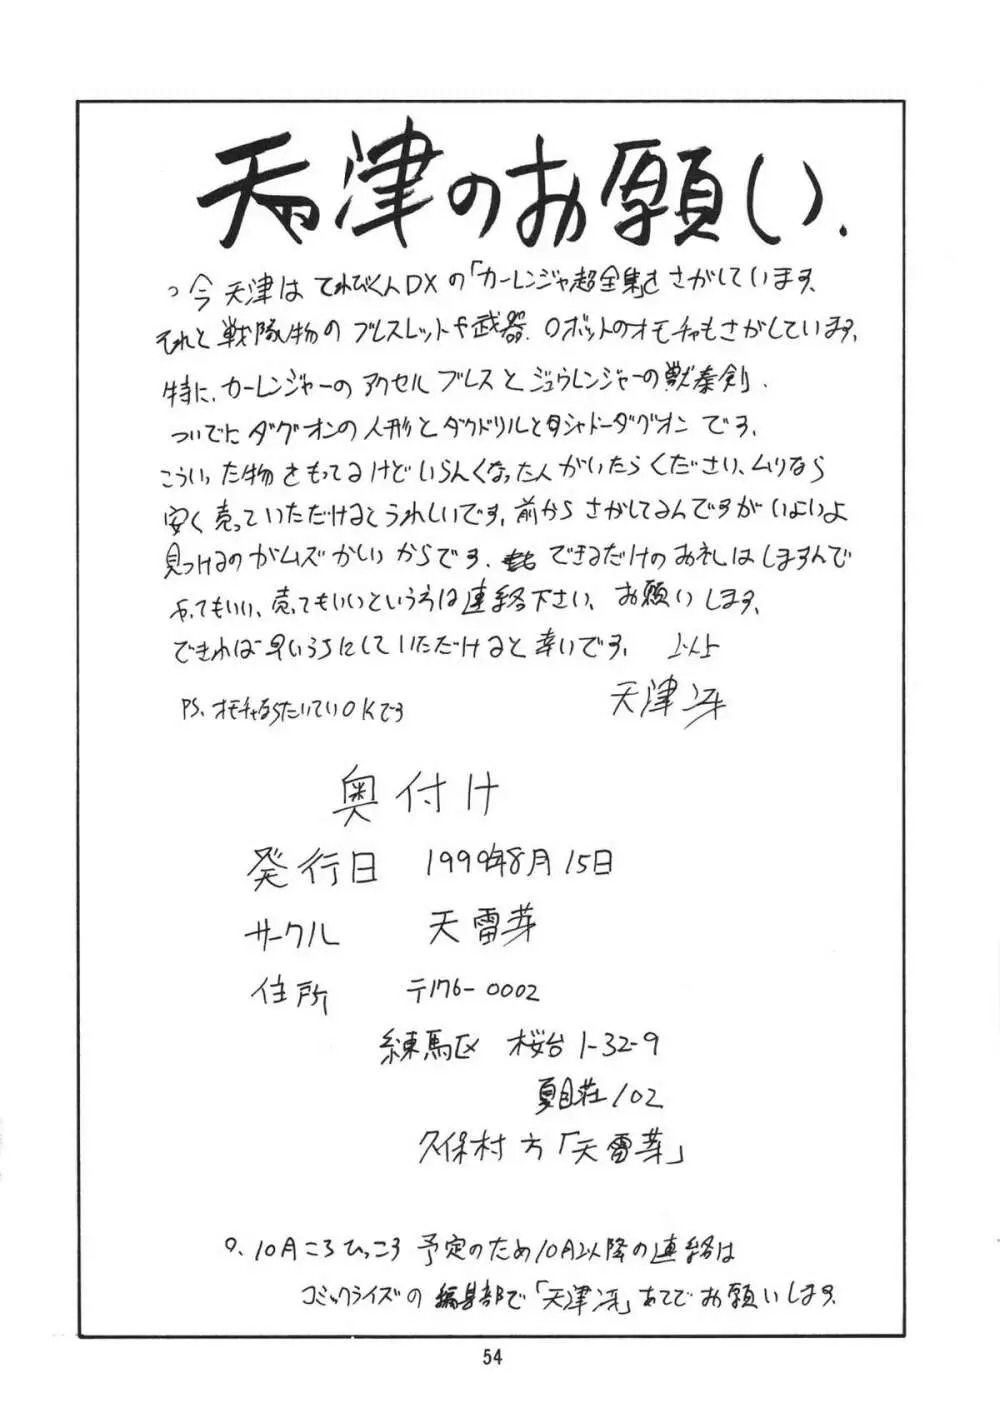 天津のお願い.
今天津は てれびくんDXの「カーレンジャー超全集」を さがしています.
それと 戦隊物の ブレスレットや武器. ロボットのオモチャもさがしています,
特に, カーレンジャーの アクセル ブレスと ジュウレンジャーの獣奏剣.
ついでに ダグオンの人形と ダグドリルと シャドーダグオン です.
こういった物をもってるけど いらんくなった人がいたら ください、ムリなら
安く売っていただけるとうれしいです, 前から さがしてるんですが いよいよ
見つけるのがムズかしいからです. できるだけのお礼はしますんで
やってもいい、売ってもいいという方は連絡下さい、お願いします,
できれば早いうちにしていただけると幸いです. 以上
PS. オモチャならたいていOKです
天津冴
奥付け
発行日 1999年8月15日
サークル 天雷芽
住所 〒176-0002
練馬区 桜台1-32-9
夏目荘102
久保村方「天雷芽」
○. 10月ころひっこす予定のため10月以降の連絡は
コミックライズの 編集部で「天津冴」あてでお願いします.
54